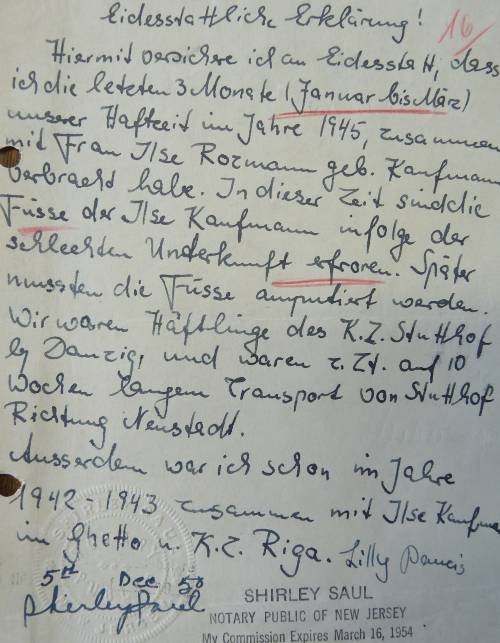 Eidesstattliche Erklärung!
16
Hiermit versichere ich an Eidesstatt, dass
ich die letzten 3 Monate (Januar bis März)
unserer Haftzeit im Jahre 1945, zusammen
mit Frau Ilse Rozmann geb. Kaufmann
verbracht habe. In dieser Zeit sind die
Füsse der Ilse Kaufmann infolge der
schlechten Unterkunft erfroren. Später
mussten die Füsse amputiert werden.
Wir waren Häftlinge des K.Z. Stutthof
by Danzig, und waren z. Zt. auf 10
Wochen langem Transport von Stutthof
Richtung Neustadt.
Ausserdem war ich schon im Jahre
1942-1943 zusammen mit Ilse Kaufma
im Ghetto u. K.Z. Riga. Lilly
5th Dec 50
Shirley Saul
SHIRLEY SAUL
NOTARY PUBLIC OF NEW JERSEY
My Commission Expires March 16, 1954